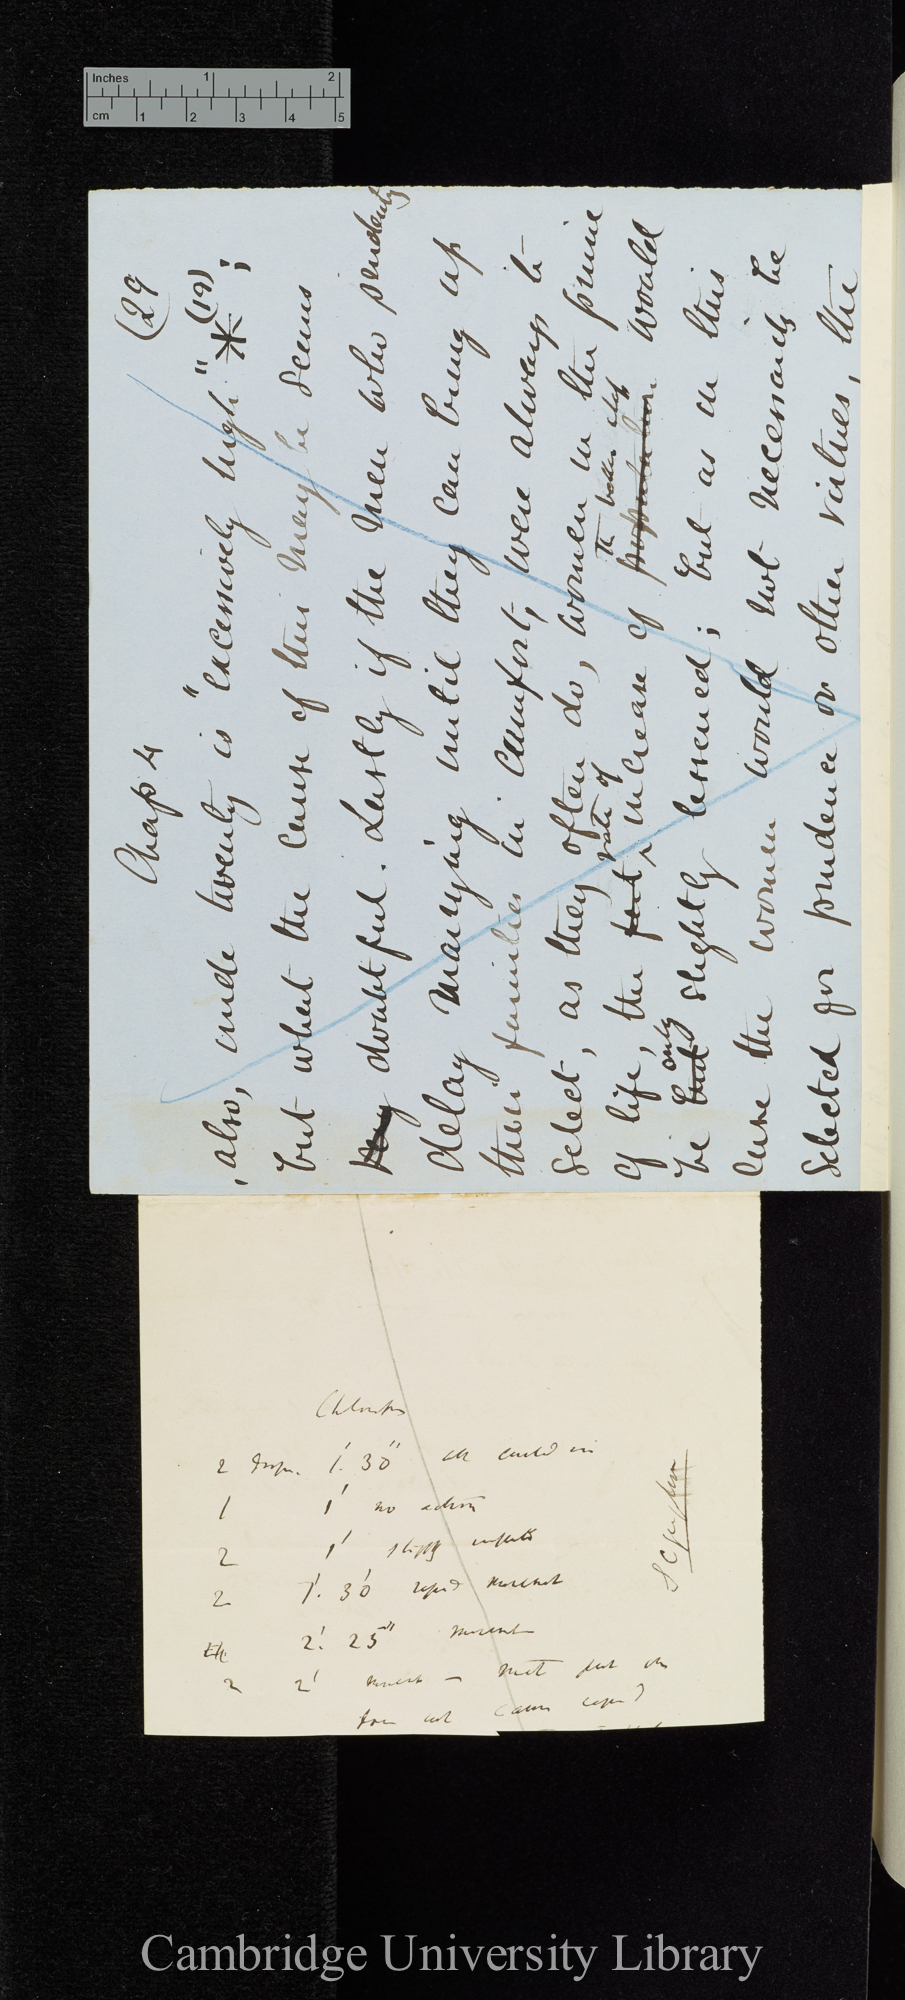 Inches 1 2
cm 1 2 3 4 5
Chap 4 (29
, also, under twenty is "excessively high." * (19);
but what the cause of this may be seems
doubtful. Lastly if the men who prudently
delay marrying until they can bring up
their families in comfort, were always to
select, as they often do, women in the prime
of life, the rate of increase of population the better class would
be but only slightly lessened; but as in this
case the women would not necessarily be
selected for prudence or other virtues, the
2 drops. 1'. 30" all curled in
1 1' no action
2 1'
2 7'. 30 rapid movement
2'. 25" movement
2 2' not